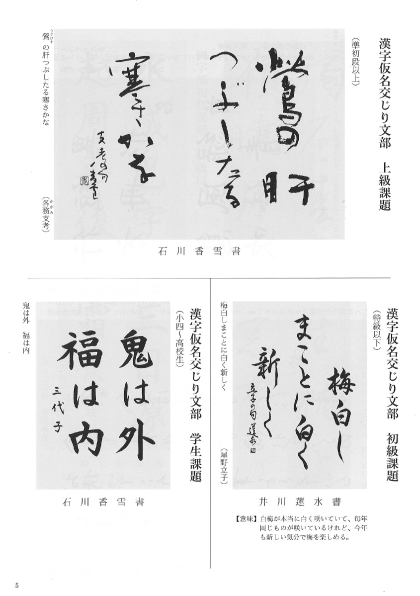 漢字仮名交じり文部　上級課題
（準初段以上）
鶯の肝
つぶしたる
寒さかな
鶯の肝つぶしたる寒さかな
（各務支考）
石川香雪書
漢字仮名交じり文部　初級課題
（特級以下）
梅白し
まことに白く
新しく
梅白しまことに白く新しく
（星野立子）
井川蓮水書
【意味】白梅が本当に白く咲いていて、毎年
同じものが咲いているけれど、今年
も新しい気分で梅を楽しめる。
漢字仮名交じり文部　学生課題
（小四～高校生）
鬼は外
福は内
三代子
鬼は外　福は内
石川香雪書
5